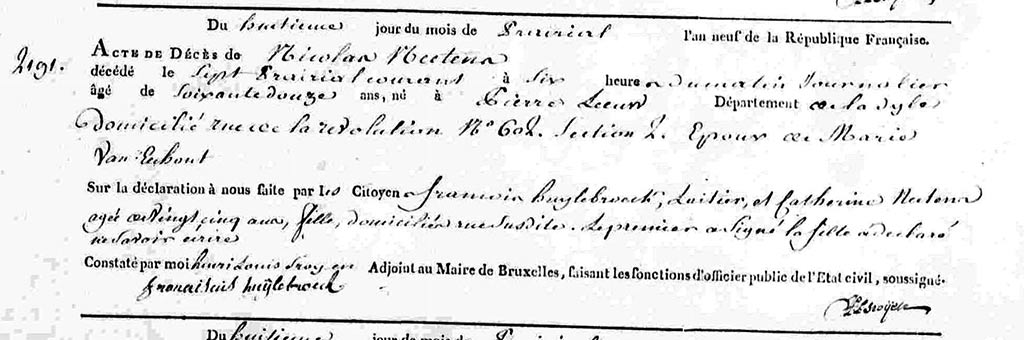 Du huitieme jour du mois de Prairial l'an neuf de la République Française.
2191.
ACTE DE DÉCÈS de Nicolas Nectens
décédé le Sept Prairial courant à Six heures du matin Journalier
âgé de Soixante douze ans, né à Pierre Leeuw Département de la dyle
Domicilié rue de la revolution N° 602. Section 2. Epoux de Marie
Van Eechout
Sur la déclaration à nous faite par les Citoyens francois huylebroeck, Laitier, et Catherine Nectens
agée de vingt cinq ans, fille, domiciliés rue susdite. Le premier a signé la fille a declaré
ne savoir écrire
Constaté par moi henri Louis Adjoint au Maire de Bruxelles, faisant les fonctions d'officier public de l'Etat civil, soussigné.
huylebroeck
Du huitieme jour du mois de